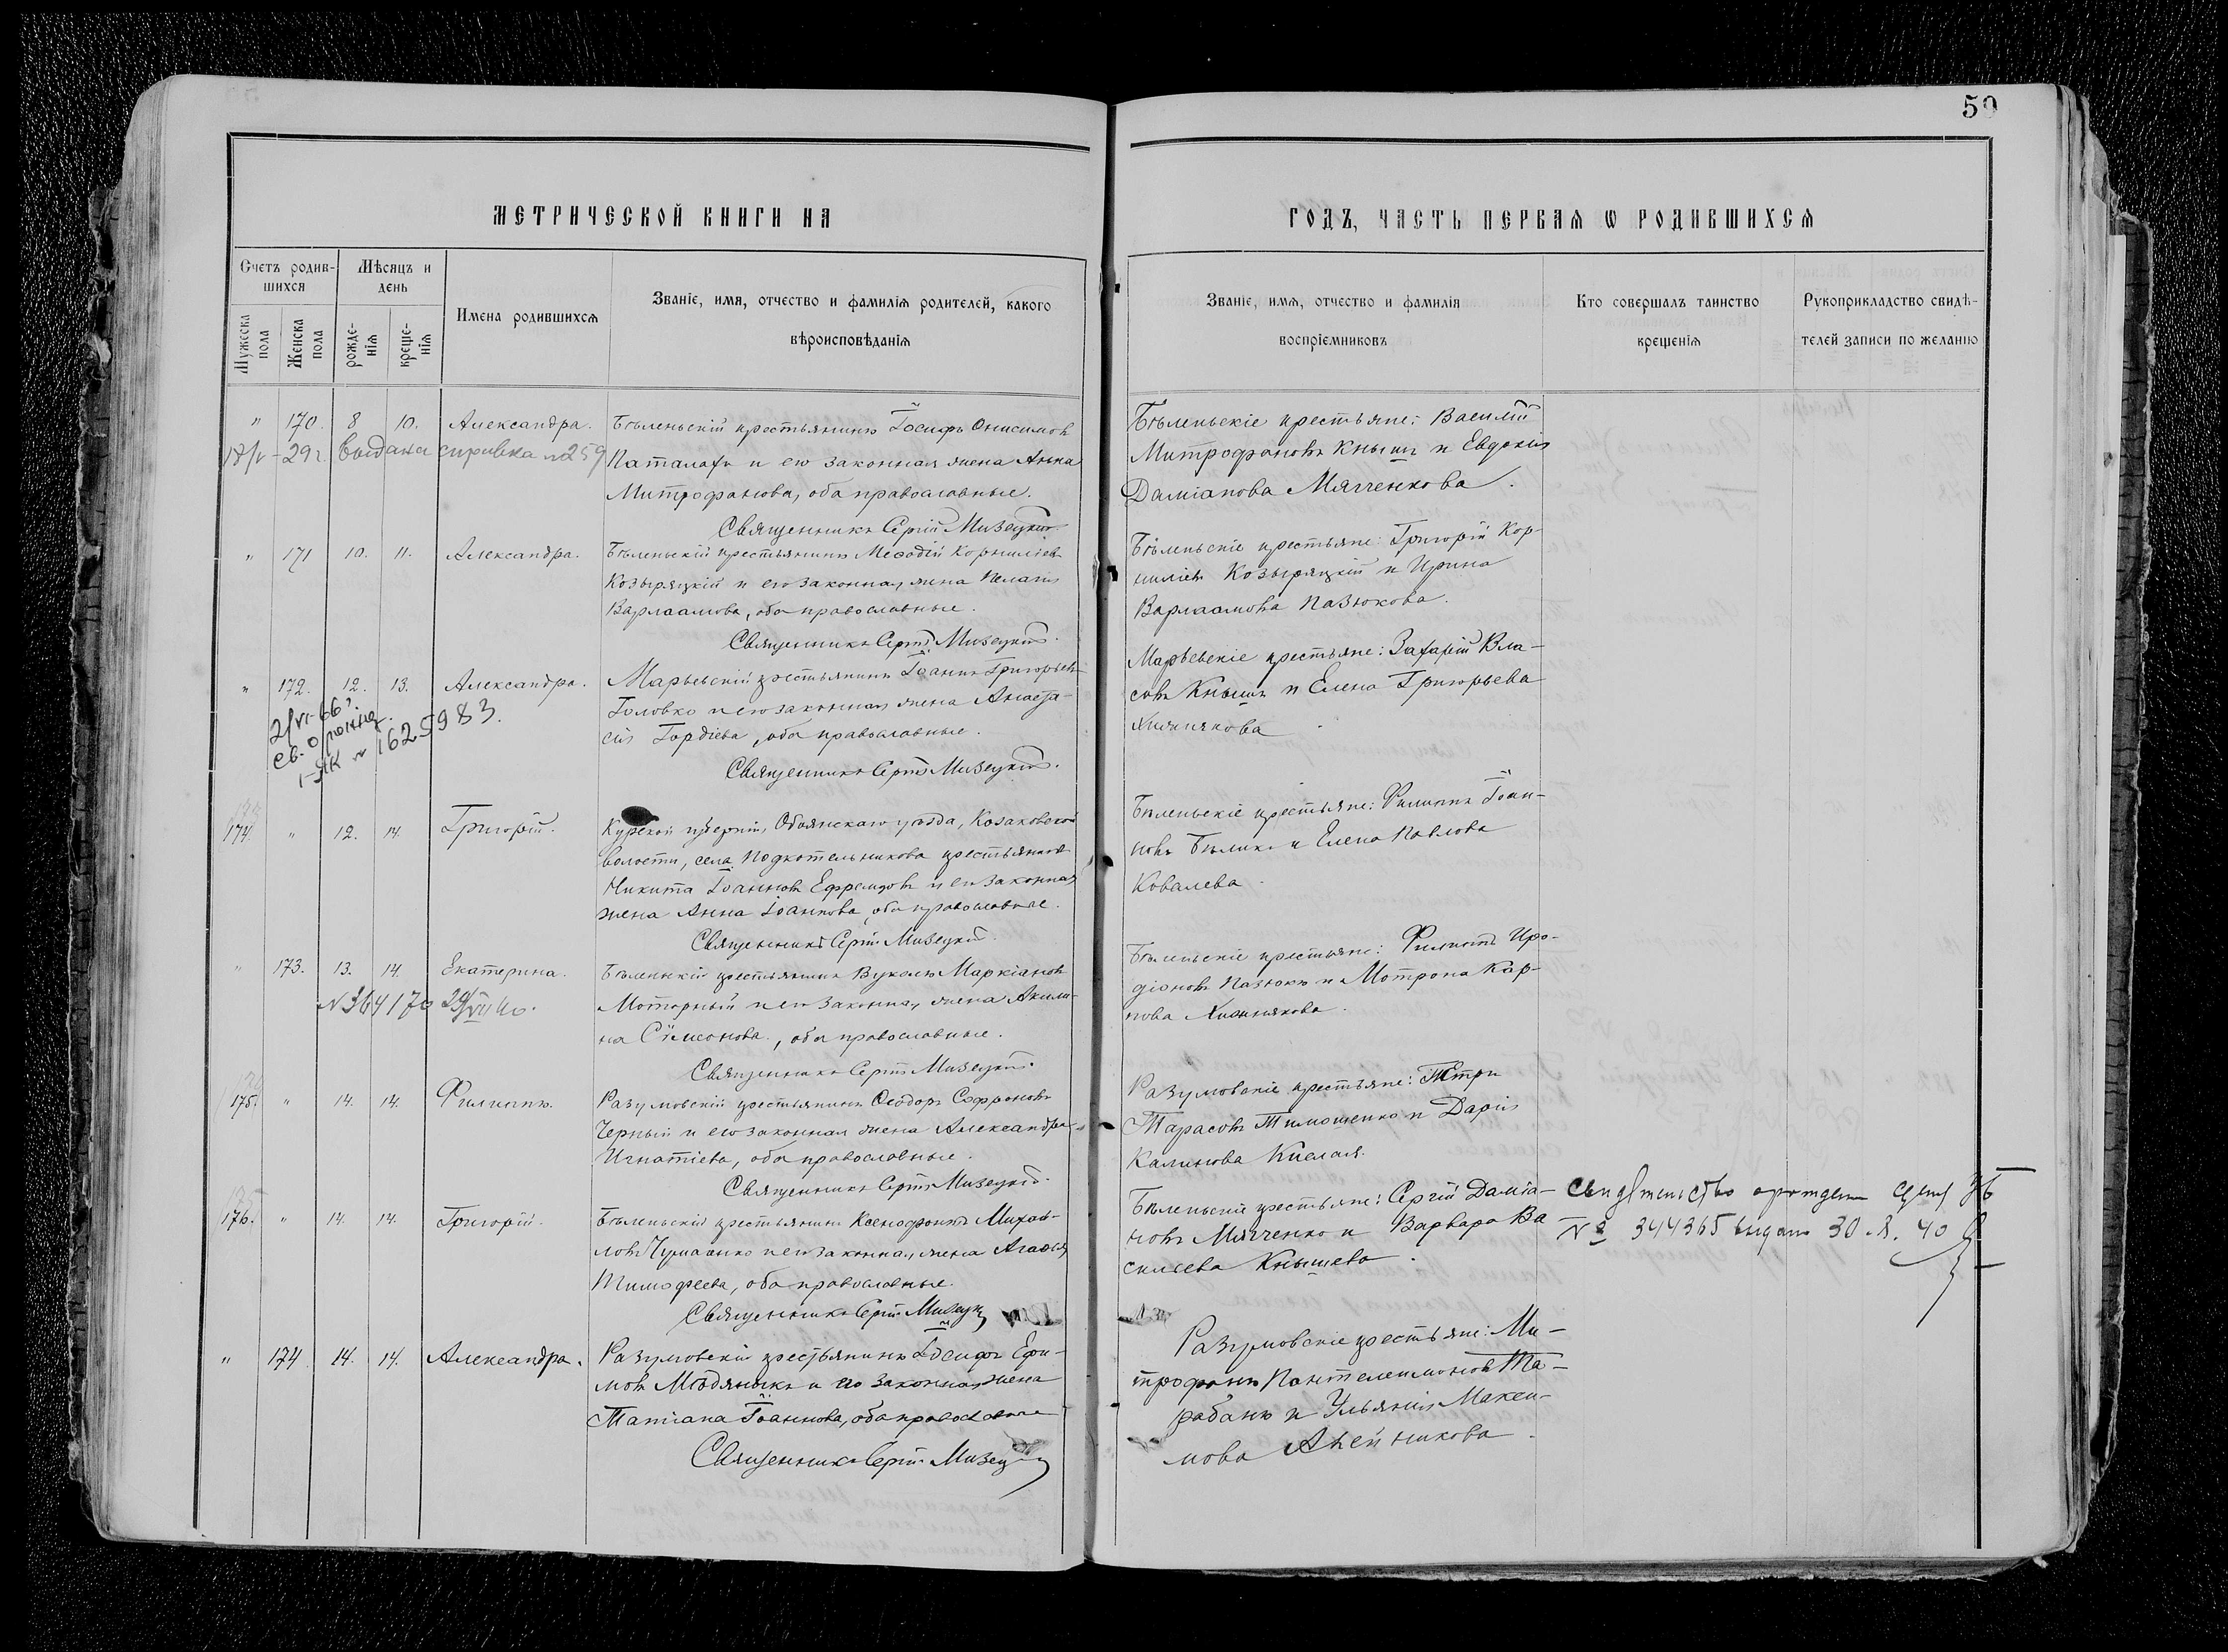 50
МЕТРИЧЕСКОЙ КНИГИ НА
ГОДЪ, ЧАСТЬ ПЕРВАЯ Ѡ РОДИВШИХСЯ
Счетъ родив-
шихся
Мужеска
пола
Женска
пола
Мѣсяцъ и
день
рожде-
нія
креще-
нія
Имена родившихся
Званіе, имя, отчество и фамилія родителей, какого
вѣроисповѣданія
Званіе, имя, отчество и фамилія
воспріемниковъ
Кто совершалъ таинство
крещенія
Рукоприкладство свидѣ-
телей записи по желанію
" 170. 8 10. Александра.
29 г. выдана справка № 259
Бѣленьскій крестьянинъ Іосифъ Онисимов
Паталаха и его законная жена Анна
Митрофанова, оба православные.
Священникъ Сергій Мизецкій
Бѣленьскіе крестьяне: Василій
Митрофановъ Кнышъ и Евдокія
Даміанова Мягченкова.
" 171 10. 11. Александра.
Бѣленьскій крестьянинъ Меѳодій Корниліев
Козыряцкій и его законная жена Пелагія
Варлаамова, оба православные.
Священникъ Сергій Мизецкій.
Бѣленьскіе крестьяне: Григорій Кор-
ниліевъ Козыряцкій и Ирина
Варлаамова Пазюкова.
" 172. 12. 13. Александра.
2/VI-66
Св. о рожд.
I-ЯК № 1625983.
Марьевскій крестьянинъ Іоаннъ Григорьевъ
Головко и его законная жена Анаста-
сія Гордіева, оба православные.
Священникъ Сергій Мизецкій.
Марьевскіе крестьяне: Захарій Вла-
совъ Кнышъ и Елена Григорьева
Хижнякова
174. " 12. 14. Григорій.
Курской губерніи, Обоянскаго уѣзда, Козаковской
волости, села Подкотельникова крестьянинъ
Никита Іоанновъ Ефремовъ и его законная
жена Анна Іоаннова, оба православные.
Священникъ Сергій Мизецкій.
Бѣленьскіе крестьяне: Филиппъ Іоан-
новъ Бѣликъ и Елена Павлова
Ковалева.
" 173. 13. 14. Екатерина.
№ 364170 29/VII 40.
Бѣленьскій крестьянинъ Вуколъ Маркіановъ
Моторный и его законная жена Акили-
на Сѵмеонова, оба православные.
Священникъ Сергій Мизецкій.
Бѣленьскіе крестьяне: Филиппъ Иро-
діоновъ Пазюкъ и Мотрона Кар-
пова Хижнякова.
175. " 14. 14. Филиппъ.
Разумовскій крестьянинъ Ѳеодоръ Софроновъ
Черный и его законная жена Александра
Игнатіева, оба православные.
Священникъ Сергій Мизецкій.
Разумовскіе крестьяне: Петри
Тарасовъ Тимошенко и Дарія
Калинова Кислая.
176. " 14. 14. Григорій.
Бѣленьскій крестьянинъ Ксенофонтъ Михаи-
ловъ Чумаченко и его законная жена Агаѳія
Тимофеева, оба православные.
Священникъ Сергій Мизецк
Бѣленьскіе крестьяне: Сергій Даміа-
новъ Мягченко и Варвара Ва
сильева Кнышева.
свидетельство о рождении
№ 344365 выдано 30. 40
" 174. 14. 14. Александра.
Разумовскій крестьянинъ Іосифъ Ефи-
мовъ Мѣдяникъ и его законная жена
Татіана Іоаннова, оба православные
Священникъ Сергій Мизец
Разумовскіе крестьяне: Ми-
трофанъ Пантелеимоновъ Та-
рабанъ и Ульянія Макси-
мова Алейникова.